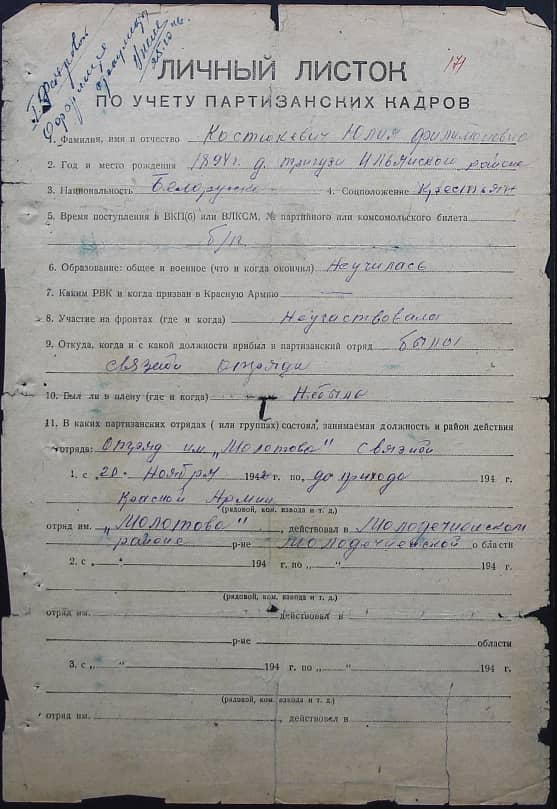 т. Фактровой
Оформите
25.10.46.
171
ЛИЧНЫЙ ЛИСТОК
ПО УЧЕТУ ПАРТИЗАНСКИХ КАДРОВ
1. Фамилия, имя и отчество Костюкевич Юлия Филимоновна
2. Год и место рождения 1894 г. д. Тригузи Ильянской районе
3. Национальность Белоруска 4. Соцположение Крестьян
5. Время поступления в ВКП(б) или ВЛКСМ, № партийного или комсомольского билета
б/п
6. Образование: общее и военное (что и когда окончил) Неучилась
7. Каким РВК и когда призван в Красную Армию —
8. Участие на фронтах (где и когда) Неучаствовала
9. Откуда, когда и с какой должности прибыл в партизанский отряд была
связной отряда
10. Был ли в плену (где и когда) Небыла
11. В каких партизанских отрядах (или группах) состоял, занимаемая должность и район действия
отряда: Отряд им. „Молотова" связной
1. с „20" Ноября 1942 г. по „до прихода 194 г.
Красной Армии
(рядовой, ком. взвода и т. д.)
отряд им. „Молотова", действовал в Молодечненском
районе р-не Молодечненской области
2. с „ " 194 г. по „ " 194 г.
(рядовой, ком. взвода и т. д.)
отряд им. действовал в
р-не области
3. с „ " 194 г. по „ " 194 г.
(рядовой, ком. взвода и т. д.)
отряд им. , действовал в